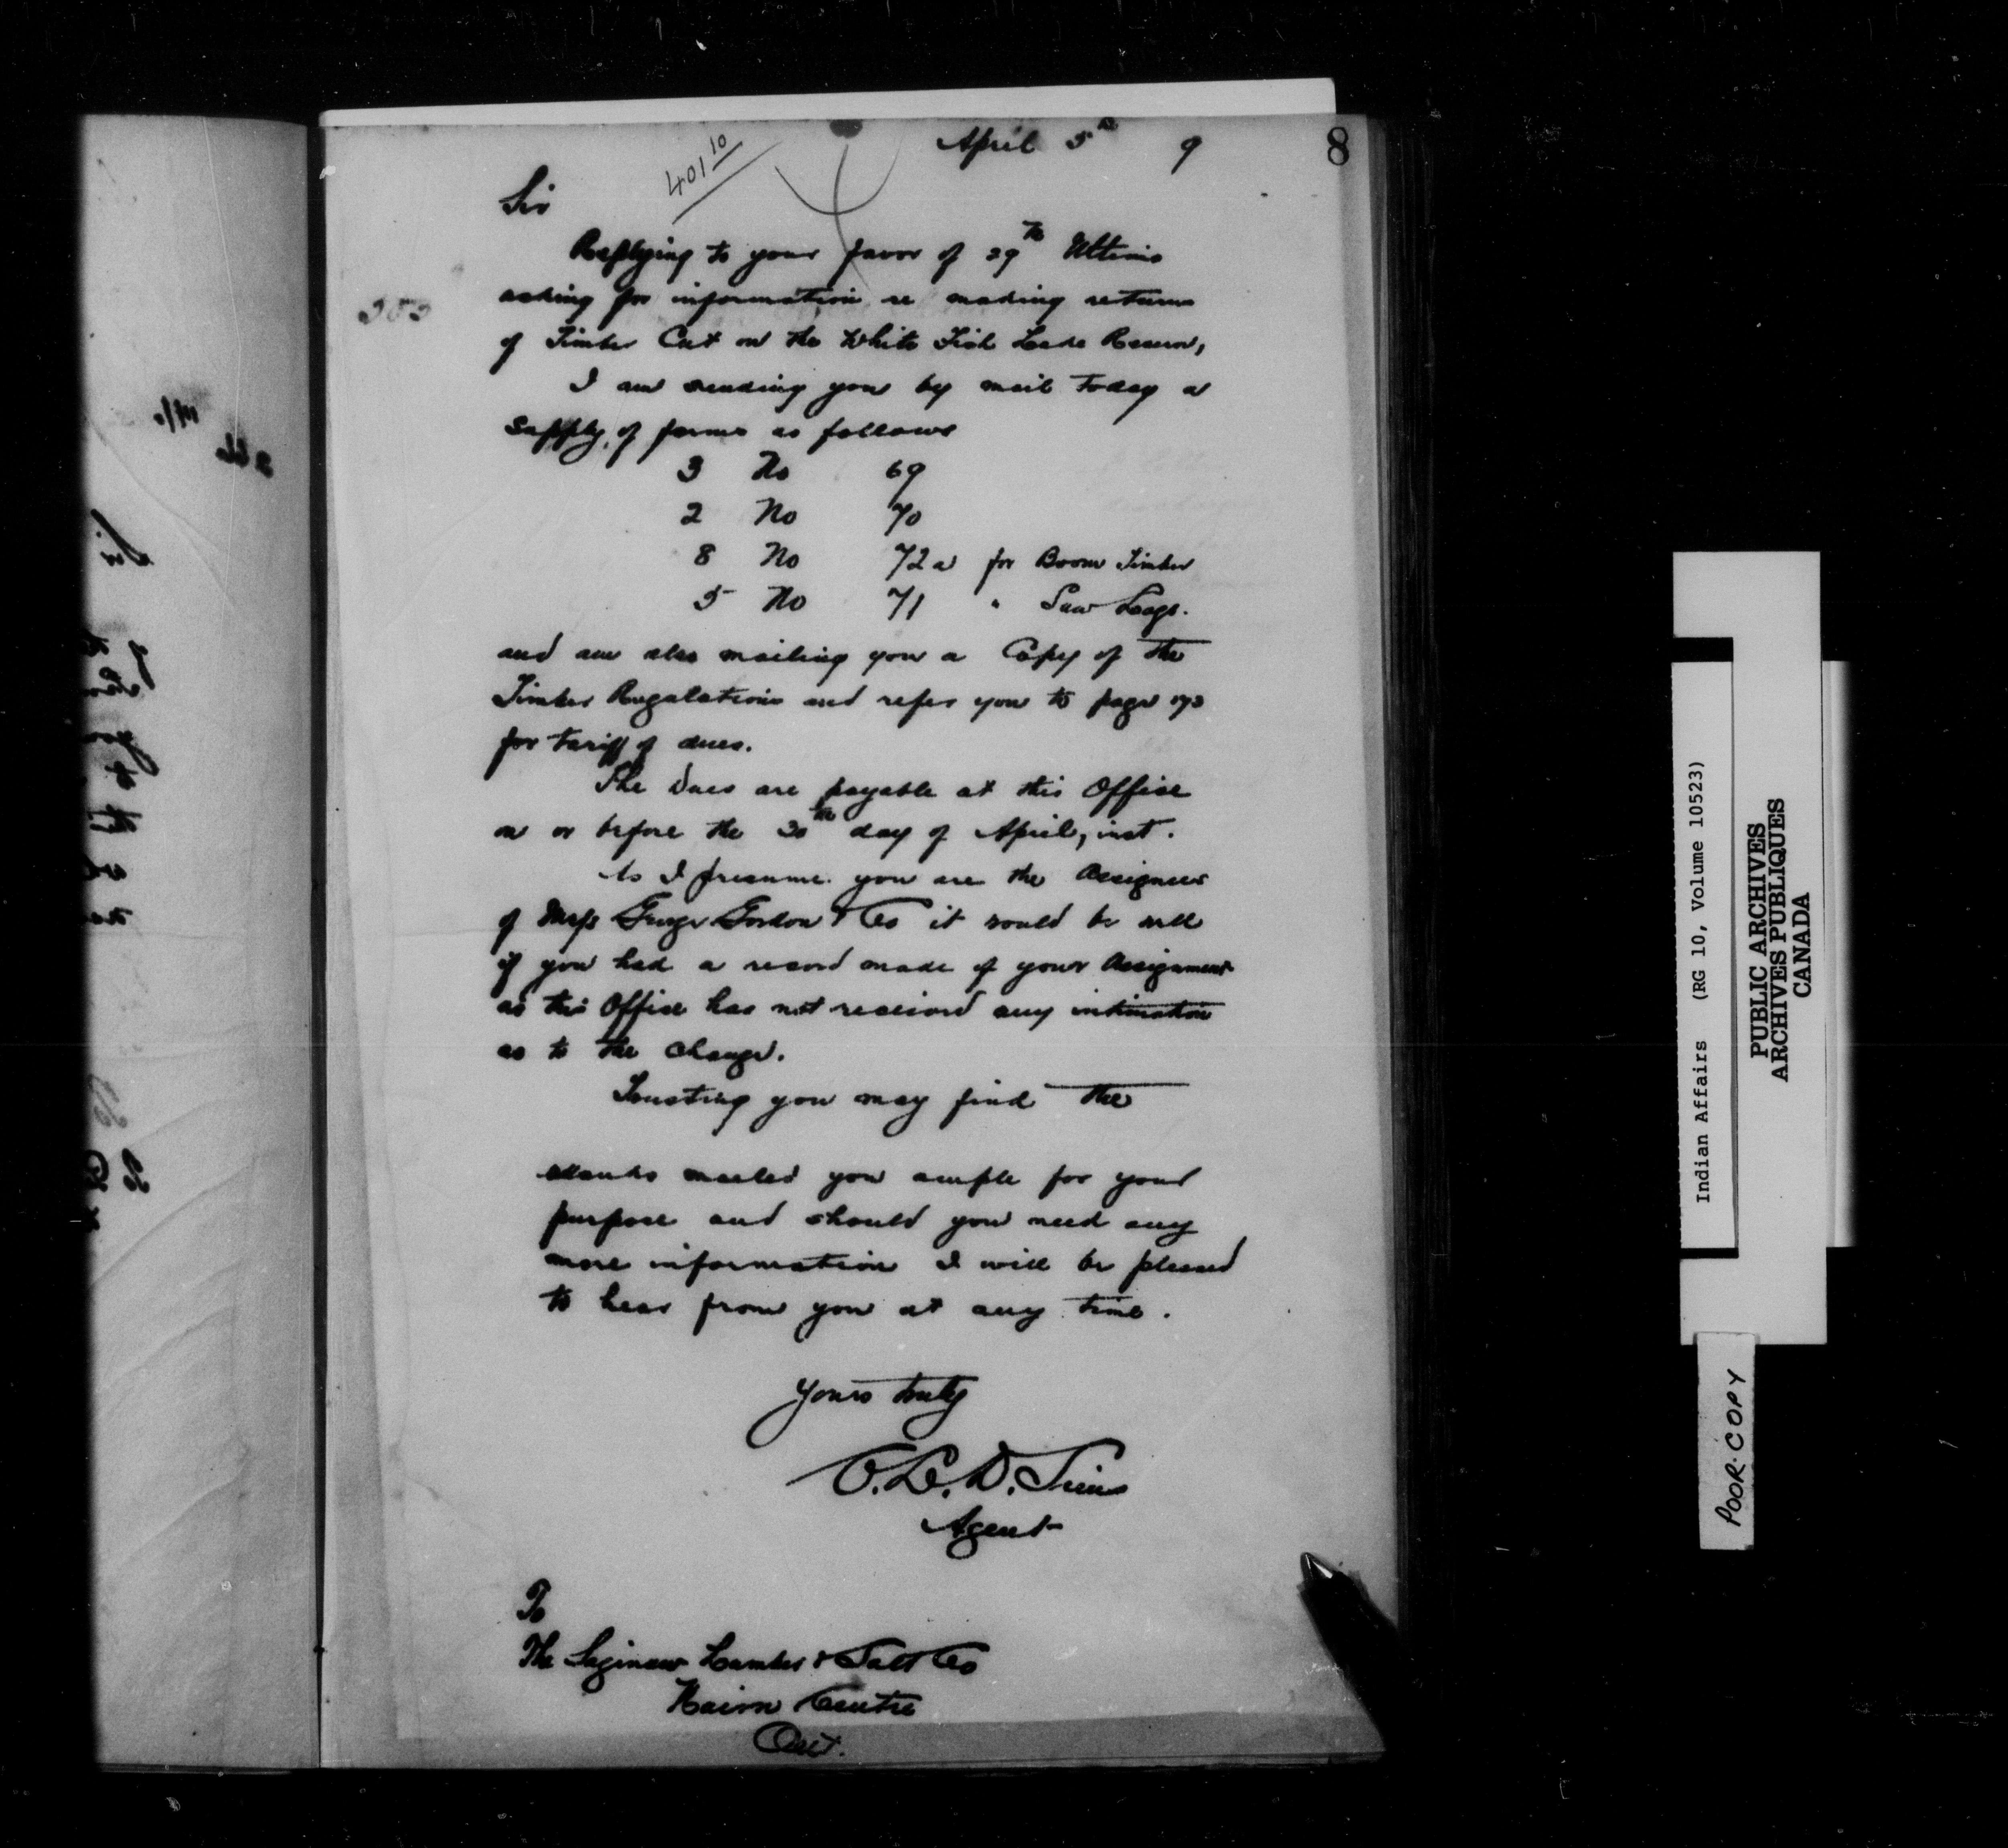 April 5th 9
8
401 10
Sir
Replying to your favor of 29th Ultimo
353
asking for information re making returns
of Timber Cut on the White Fish Lake Reserve,
I am sending you by mail today a
supply of forms as follows
3 No 69
2 No 70
8 No 72a for Boom Timber
5 No 71 " Saw Logs.
and am also mailing you a Copy of the
Timber Regulations and refer you to page 173
for tariff of dues.
The Dues are payable at this Office
on or before the 30th day of April, inst.
As I presume you are the Assignees
of Mess George Gordon & Co it would be well
if you had a record made of your Assignment
as this Office has not received any intimation
as to the change.
Trusting you may find the
blanks mailed you ample for your
purpose and should you need any
more information I will be pleased
to hear from you at any time.
Yours truly
C.L.D. Sims
Agent
To
The Saginaw Lumber & Salt Co
Nairn Centre
Ont.
Indian Affairs (RG 10, Volume 10523)
PUBLIC ARCHIVES
ARCHIVES PUBLIQUES
CANADA
POOR COPY